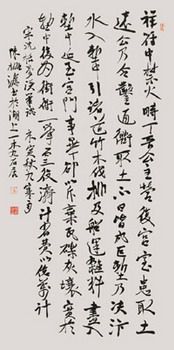 祥符中禁火時丁晉公主營復宮室患取土
遠公乃令鑿通衢取土不日皆成巨塹乃決汴
水入塹中引諸道竹木排及船運雜料盡
塹中至宮門事畢却以斥棄瓦礫灰壤實於
塹中復为街衢一舉而三役濟计省費以億萬计
宋沈括夢溪筆談
於湖上